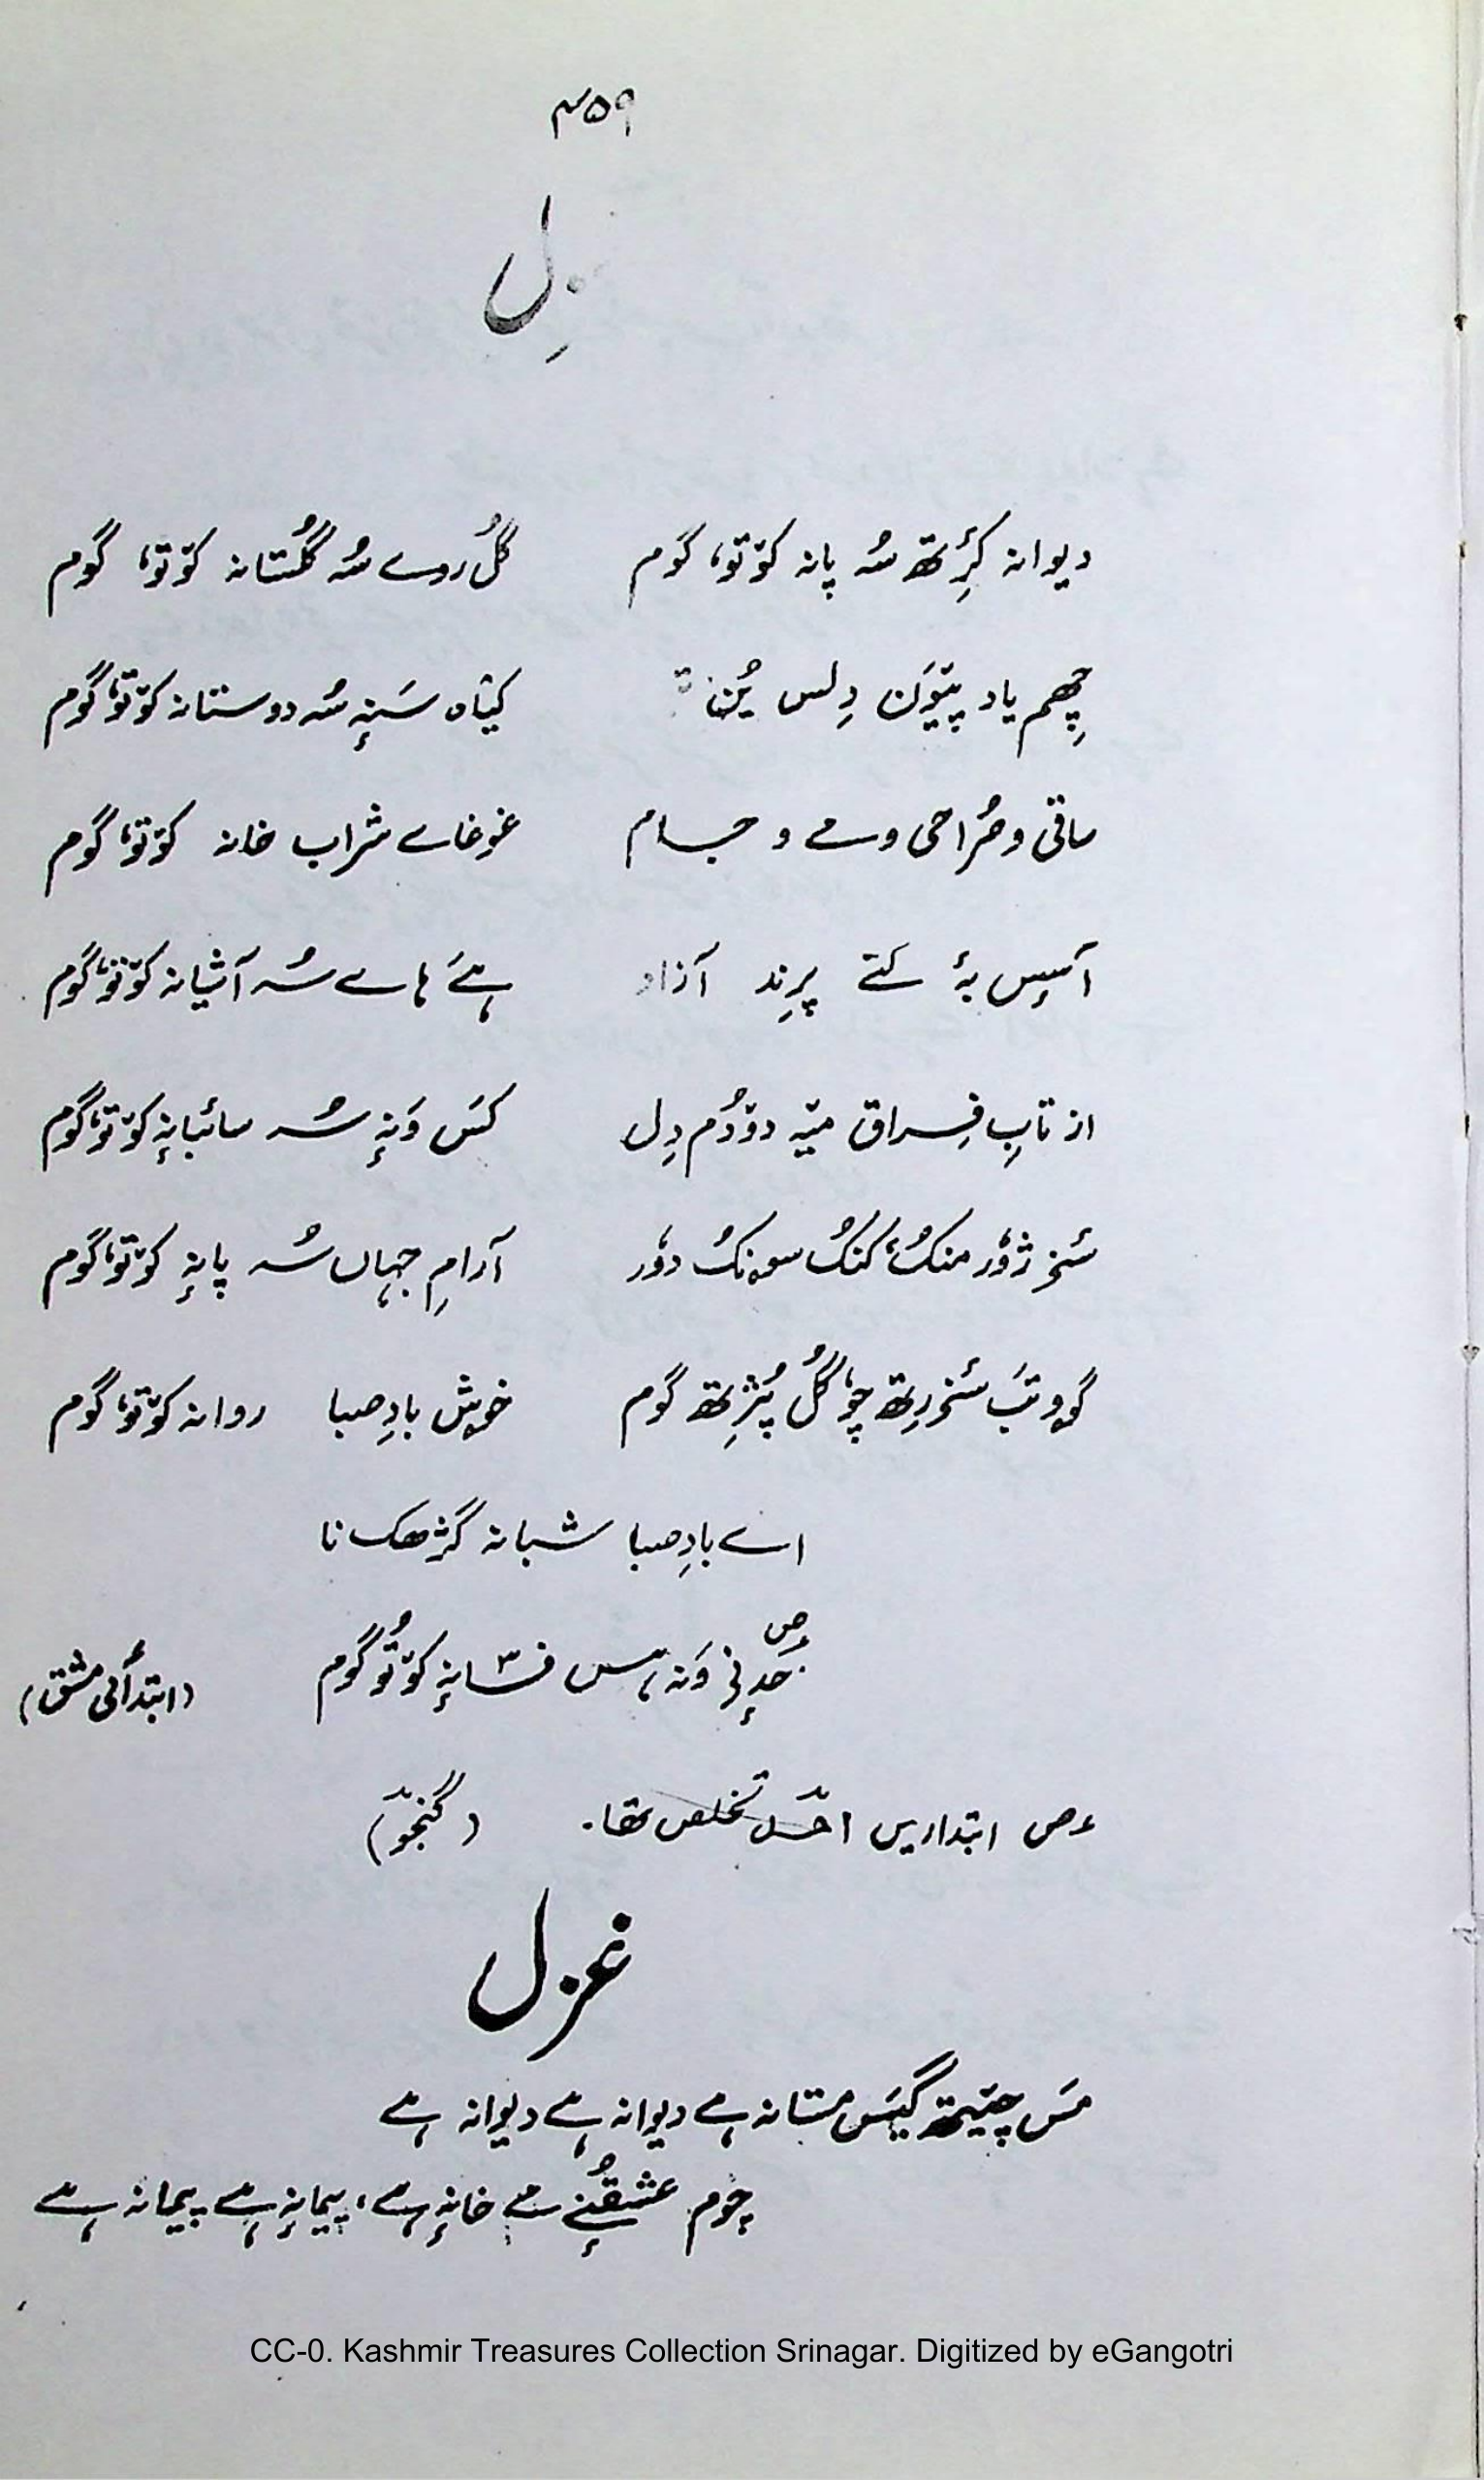 ۳۵۹
دیوانہ کٔرِتھ سُہ پانہ کوٚتوٗ گوم گُل روے سُہ گُلستانہ کوٚتوٗ گوم
چھِم یاد پیٚوَن دِلس کیٚاہ سَنہٕ سُہ دوستانہ کوٚتوٗ گوم
ساقی و صُراحی و مے و جام غوغاے شراب خانہ کوٚتوٗ گوم
آسِس بۂ کتے پرِند آزاد ہےَ ہاے سُہ آشیانہ کوٚتوٗ گوم
از تابِ فِراق میٚہ دوٚدُم دِل کَس وَنہٕ سُہ سائبانہٕ کوٚتوٗ گوم
آرامِ جہاں سُہ پانہٕ کوٚتوٗ گوم
خوش بادِ صبا روانہ کوٚتوٗ گوم
اے بادِ صبا شبانہ گژھک نا
فسانہٕ کوٚتُو گوم (ابتدائی مشق)
؏ص ابتدا میں تخلص تھا۔ (گنجوٗ)
غزل
مَس چیٚتھ گیَس مستانہ ہے دیوانہ ہے دیوانہ ہے
چوم عشقُنے مے خانہٕ ہے، پیمانہٕ ہے پیمانہ ہے
CC-0. Kashmir Treasures Collection Srinagar. Digitized by eGangotri